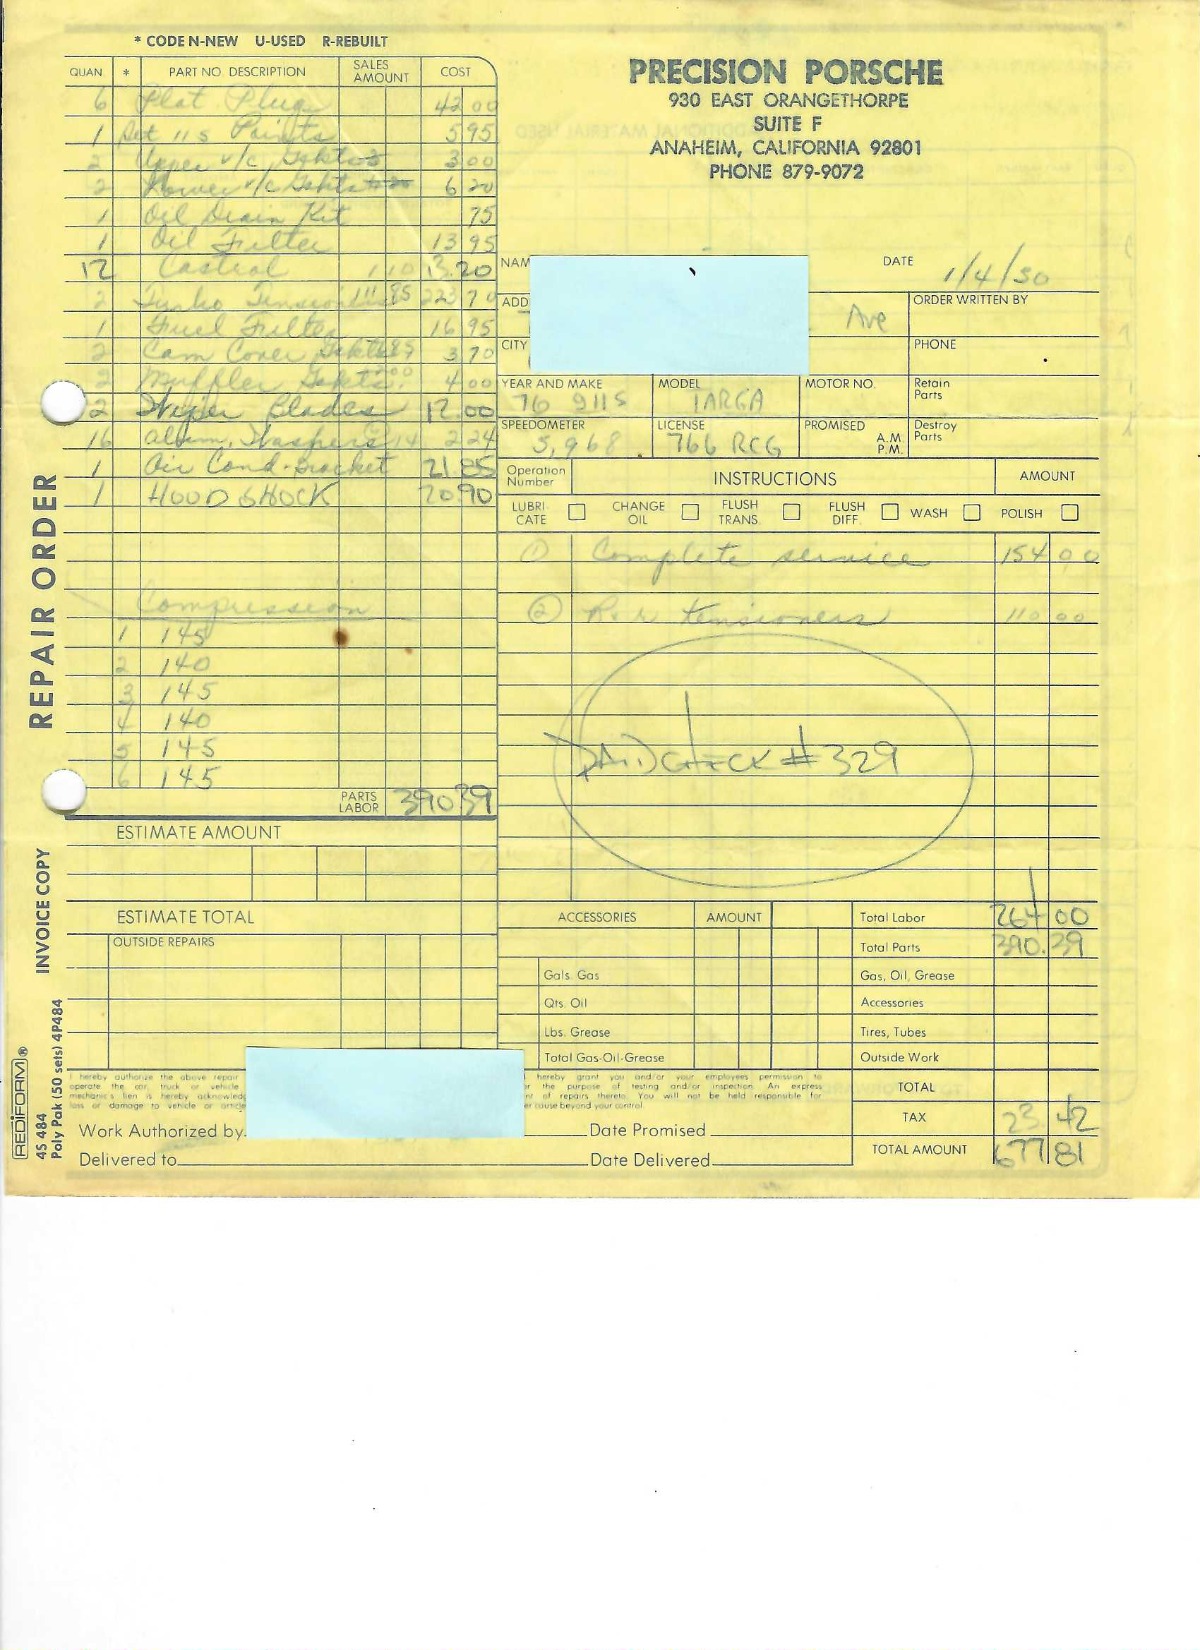 * CODE N-NEW U-USED R-REBUILT
QUAN. * PART NO. DESCRIPTION SALES AMOUNT COST
6 Plat Plug 42 00
1 Set 11s Points 5 95
2 Upper v/c Gskts 3 00
2 Lower v/c Gskts 6 20
1 Oil Drain Kit 75
1 Oil Filter 13 95
12 Castrol 1 10 13.20
2 Turbo Tensioners 111 85 223 70
1 Fuel Filter 16 95
2 Cam Cover Gskt 1 85 3 70
2 Muffler Gskts. 2 00 4 00
2 Wiper Blades 12.00
16 alum. Washers 14 2 24
1 Air Cond. Bracket 21.85
1 HOOD SHOCK 20.90
Compression
1 145
2 140
3 145
4 140
5 145
6 145
PARTS LABOR 390 39
ESTIMATE AMOUNT
ESTIMATE TOTAL
OUTSIDE REPAIRS
REPAIR ORDER
INVOICE COPY
REDIFORM®
4S 484
Poly Pak (50 sets) 4P484
PRECISION PORSCHE
930 EAST ORANGETHORPE
SUITE F
ANAHEIM, CALIFORNIA 92801
PHONE 879-9072
NAM DATE 1/4/80
ADD Ave ORDER WRITTEN BY
CITY PHONE
YEAR AND MAKE 76 911S MODEL TARGA MOTOR NO. Retain Parts
SPEEDOMETER 5,968 LICENSE 766 RCG PROMISED A.M. P.M. Destroy Parts
Operation Number INSTRUCTIONS AMOUNT
LUBRI-CATE CHANGE OIL FLUSH TRANS. FLUSH DIFF. WASH POLISH
① Complete service 154 00
② R & R tensioners 110 00
PAID CHECK # 329
ACCESSORIES AMOUNT Total Labor 264 00
Total Parts 390.39
Gals. Gas Gas, Oil, Grease
Qts. Oil Accessories
Lbs. Grease Tires, Tubes
Total Gas-Oil-Grease Outside Work
I hereby authorize the above repair hereby grant you and/or your employees permission to
operate the car, truck or vehicle the purpose of testing and/or inspection. An express
mechanic's lien is hereby acknowledg of repairs thereto. You will not be held responsible for
loss or damage to vehicle or article cause beyond your control.
TOTAL
TAX 23 42
TOTAL AMOUNT 677 81
Work Authorized by Date Promised
Delivered to Date Delivered